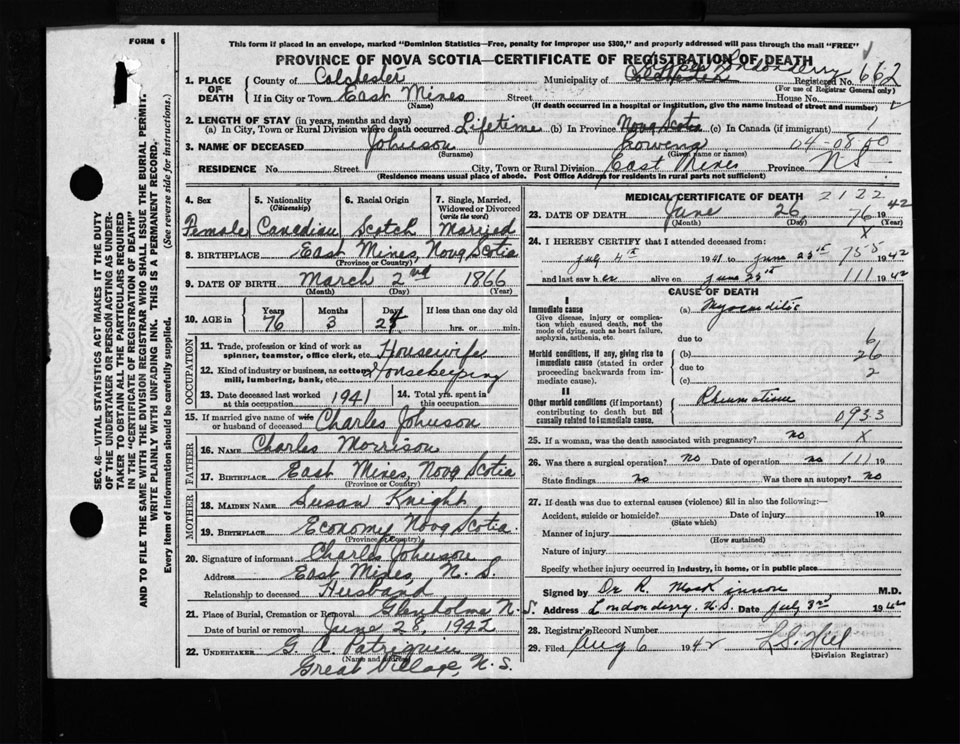 FORM 6
This form if placed in an envelope, marked "Dominion Statistics—Free, penalty for improper use $300," and properly addressed will pass through the mail "FREE"
PROVINCE OF NOVA SCOTIA—CERTIFICATE OF REGISTRATION OF DEATH
1. PLACE OF DEATH County of Colchester Municipality of Londonderry Registered No. 662
(For use of Registrar General only)
If in City or Town East Mines Street House No.
(Name) (If death occurred in a hospital or institution, give the name instead of street and number)
2. LENGTH OF STAY (in years, months and days)
(a) In City, Town or Rural Division where death occurred Lifetime (b) In Province Nova Scotia (c) In Canada (if immigrant) 1
3. NAME OF DECEASED Johnson Rowena 04-08 50
(Surname) (Given name or names)
RESIDENCE No. Street City, Town or Rural Division East Mines Province N.S.
(Residence means usual place of abode. Post Office Address for residents in rural parts not sufficient)
4. Sex Female
5. Nationality (Citizenship) Canadian
6. Racial Origin Scotch
7. Single, Married, Widowed or Divorced (write the word) Married
8. BIRTHPLACE East Mines, Nova Scotia
(Province or Country)
9. DATE OF BIRTH March 2nd 1866
(Month) (Day) (Year)
10. AGE in Years Months Days If less than one day old
76 3 24 hrs. or min.
OCCUPATION
11. Trade, profession or kind of work as spinner, teamster, office clerk, etc. Housewife
12. Kind of industry or business, as cotton mill, lumbering, bank, etc. Housekeeping
13. Date deceased last worked at this occupation 1941
14. Total yrs. spent in this occupation
15. If married give name of wife or husband of deceased Charles Johnson
FATHER
16. NAME Charles Morrison
17. BIRTHPLACE East Mines, Nova Scotia
(Province or Country)
MOTHER
18. MAIDEN NAME Susan Knight
19. BIRTHPLACE Economy Nova Scotia
(Province or Country)
20. Signature of informant Charles Johnson
Address East Mines, N.S.
Relationship to deceased Husband
21. Place of Burial, Cremation or Removal Glenholme N.S.
Date of burial or removal June 28, 1942
22. UNDERTAKER G. A. Patriquin
(Name and address)
Great Village, N.S.
MEDICAL CERTIFICATE OF DEATH 2122
23. DATE OF DEATH June 26, 76 1942
(Month) (Day) (Year)
X
24. I HEREBY CERTIFY that I attended deceased from:
July 4th 1941 to June 25th 755 1942
and last saw her alive on June 25th 111 1942
CAUSE OF DEATH
I
Immediate cause
Give disease, injury or complication which caused death, not the mode of dying, such as heart failure, asphyxia, asthenia, etc.
(a) Myocarditis
due to 6
Morbid conditions, if any, giving rise to immediate cause (stated in order proceeding backwards from immediate cause).
(b) 26
due to 2
(c)
II
Other morbid conditions (if important) contributing to death but not causally related to immediate cause.
Rheumatism
0933
25. If a woman, was the death associated with pregnancy? no X
26. Was there a surgical operation? no Date of operation no 111 19
State findings no Was there an autopsy? no
27. If death was due to external causes (violence) fill in also the following:—
Accident, suicide or homicide? Date of injury 19
(State which)
Manner of injury
(How sustained)
Nature of injury
Specify whether injury occurred in industry, in home, or in public place
Signed by Dr R. MacKinnon M.D.
Address Londonderry. N.S. Date July 3rd 1942
28. Registrar's Record Number
29. Filed Aug 6 1942 L.S. Hill
(Division Registrar)
SEC. 46—VITAL STATISTICS ACT MAKES IT THE DUTY
OF THE UNDERTAKER OR PERSON ACTING AS UNDERTAKER TO OBTAIN ALL THE PARTICULARS REQUIRED
IN THE "CERTIFICATE OF REGISTRATION OF DEATH"
AND TO FILE THE SAME WITH THE DIVISION REGISTRAR WHO SHALL ISSUE THE BURIAL PERMIT.
WRITE PLAINLY WITH UNFADING INK. THIS IS A PERMANENT RECORD.
Every item of information should be carefully supplied. (See reverse side for instructions.)